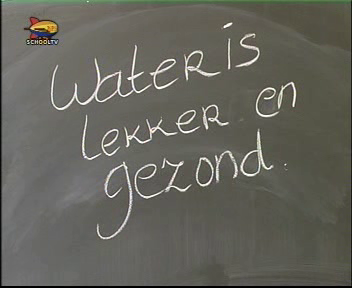 SCHOOLTV
Water is
lekker en
gezond.